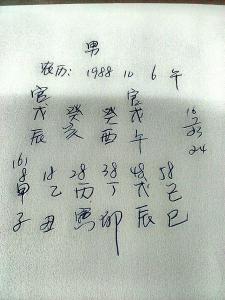 男
农历: 1988 10 6 午
官 官
戊 癸 癸 戊
辰 亥 酉 午
16
23
24
161
8 18 28 38 48 58
甲 乙 丙 丁 戊 己
子 丑 寅 卯 辰 巳